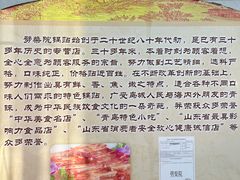 劈柴院锅贴始创于二十世纪八十年代初，是已有三十
多年历史的零售店，三十多年来，本着时刻为顾客着想，
全心全意为顾客服务的宗旨，努力做到工艺精细，选料严
格，口味纯正，价格贴进百姓，在不断改革创新的基础上，
努力制作出具有鲜、香、焦、嫩之特点，适合各种不同口
味人们需求的特色锅贴，广受岛城人民与海内外朋友的青
睐，成为中华民族饮食文化的一品奇葩，并荣获众多荣誉
“中华美食名店”、“青岛特色小吃”、“山东省最具影
响力食品店”、“山东省消费者安全放心健康诚信店”等
众多荣誉。